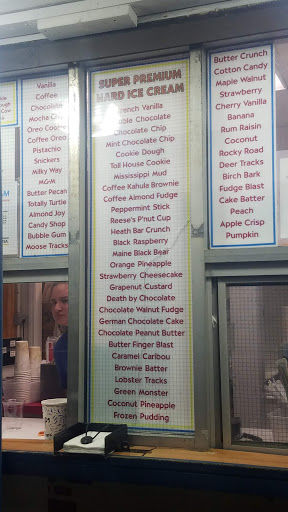 Vanilla
Coffee
Chocolate
Mocha Chip
Oreo Cookie
Coffee Oreo
Pistachio
Snickers
Milky Way
M&M
Butter Pecan
Totally Turtle
Almond Joy
Candy Shop
Bubble Gum
Moose Tracks
SUPER PREMIUM
HARD ICE CREAM
French Vanilla
Double Chocolate
Chocolate Chip
Mint Chocolate Chip
Cookie Dough
Toll House Cookie
Mississippi Mud
Coffee Kahula Brownie
Coffee Almond Fudge
Peppermint Stick
Reese's P'nut Cup
Heath Bar Crunch
Black Raspberry
Maine Black Bear
Orange Pineapple
Strawberry Cheesecake
Grapenut Custard
Death by Chocolate
Chocolate Walnut Fudge
German Chocolate Cake
Chocolate Peanut Butter
Butter Finger Blast
Caramel Caribou
Brownie Batter
Lobster Tracks
Green Monster
Coconut Pineapple
Frozen Pudding
Butter Crunch
Cotton Candy
Maple Walnut
Strawberry
Cherry Vanilla
Banana
Rum Raisin
Coconut
Rocky Road
Deer Tracks
Birch Bark
Fudge Blast
Cake Batter
Peach
Apple Crisp
Pumpkin